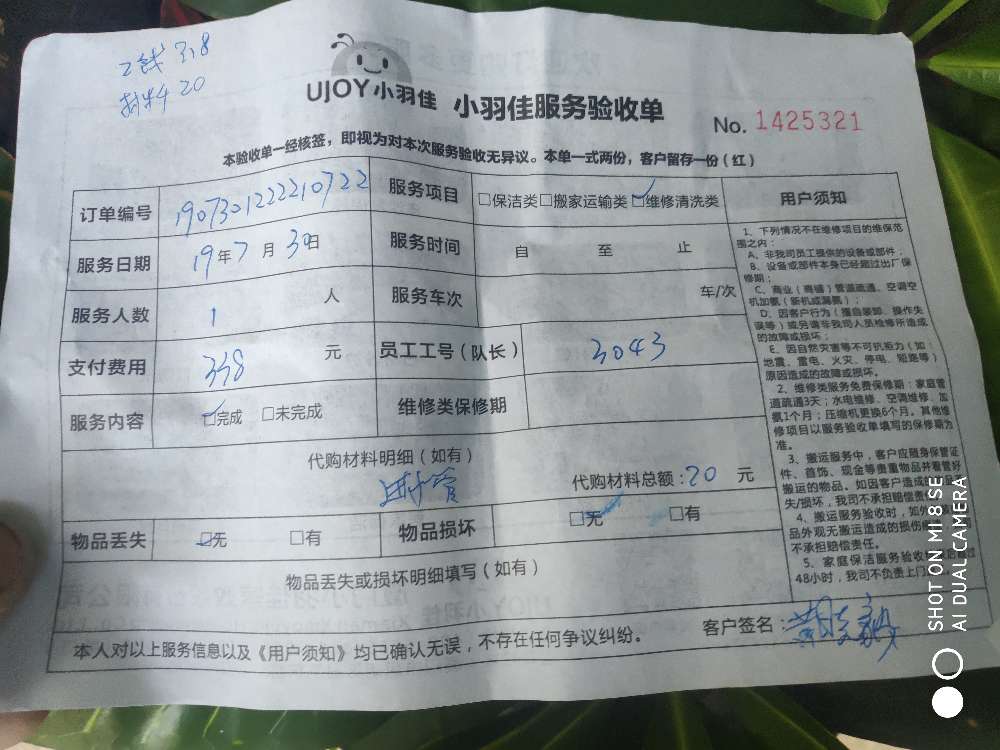 工钱 318
材料 20
UJOY小羽佳 小羽佳服务验收单
No. 1425321
本验收单一经核签，即视为对本次服务验收无异议。本单一式两份，客户留存一份（红）
订单编号 190730122221072​2 服务项目 □保洁类□搬家运输类□维修清洗类 用户须知
服务日期 19年7月30日 服务时间 自 至 止
服务人数 1 人 服务车次 车/次
支付费用 338 元 员工工号（队长） 3043
服务内容 □完成 □未完成 维修类保修期
代购材料明细（如有）
进水管 代购材料总额：20 元
物品丢失 □无 □有 物品损坏 □无 □有
物品丢失或损坏明细填写（如有）
本人对以上服务信息以及《用户须知》均已确认无误，不存在任何争议纠纷。 客户签名：
1、下列情况不在维修项目的维保范
围之内：
A、非我司员工提供的设备或部件；
B、设备或部件本身已经超过出厂保
修期；
C、商业（商铺）管道疏通、空调空
机加氟（新机或漏氟）；
D、因客户行为（擅自装卸、操作失
误等）或另请非我司人员检修所造成
的故障或损坏；
E、因自然灾害等不可抗拒力（如：
地震、雷电、火灾、停电、短路等）
原因造成的故障或损坏。
2、维修类服务免费保修期：家庭管
道疏通3天；水电维修、空调维修、加
氟1个月；压缩机更换6个月。其他维
修项目以服务验收单填写的保修期为
准。
3、搬运服务中，客户应随身保管证
件、首饰、现金等贵重物品并看管好
搬运的物品。如因客户造成的
失/损坏，我司不承担赔偿责
4、搬运服务验收时，如外
品外观无搬运造成的损伤
不承担赔偿责任。
5、家庭保洁服务验收 过
48小时，我司不负责上门
SHOT ON MI 8 SE
AI DUAL CAMERA